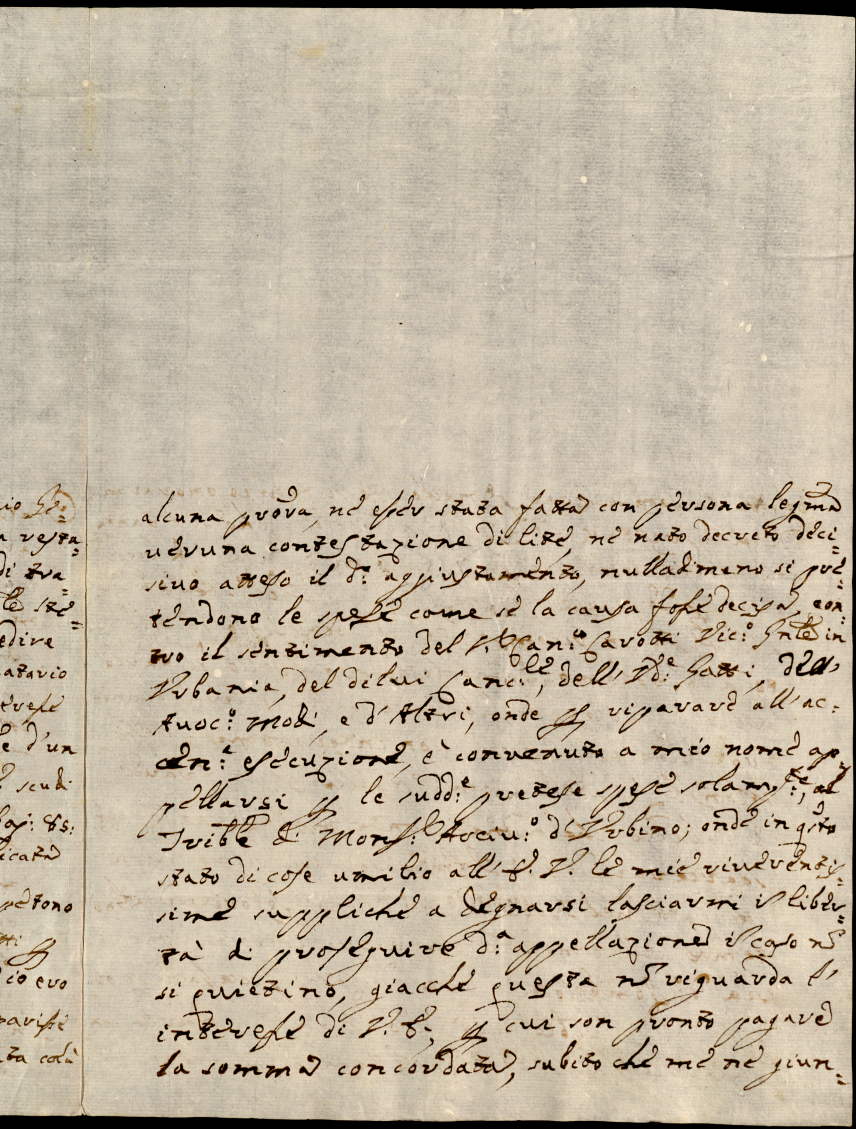 io Ge=
a resta=
di tra=
le ste=
edire
atario
teresse
e d'un
scudi
baj: 85:
icata
petono
io ero
parisse
ta colà
alcuna prova, ne esser stata fatta con persona legma
veruna contestazione di lite, ne nato decreto deci=
sivo atteso il d.º aggiustamento, nulladimeno si pre=
tendono le spese come se la causa fosse decisa, con=
tro il sentimento del Can.co Carotti Vic.º Gnle in
Urbania, del di lui Canc.le, dell' Gatti, dell'
Avoc.º Modi, e d'Altri, onde p riparare all'ac=
cen.a esecuzione, è convenuto a mio nome ap
pellarsi p le sudd.e pretese spese solam.te, al
Trible di Mons.r Arciv.º d'Urbino; onde in qsto
stato di cose umilio all' S. V. le mie riverentis=
sime suppliche a degnarsi lasciarmi in liber=
tà di proseguire d.a appellazione in caso nō
si quietino, giacche questa nō riguarda l'
interesse di V. S., p cui son pronto pagare
la somma concordata, subito che me ne giun=